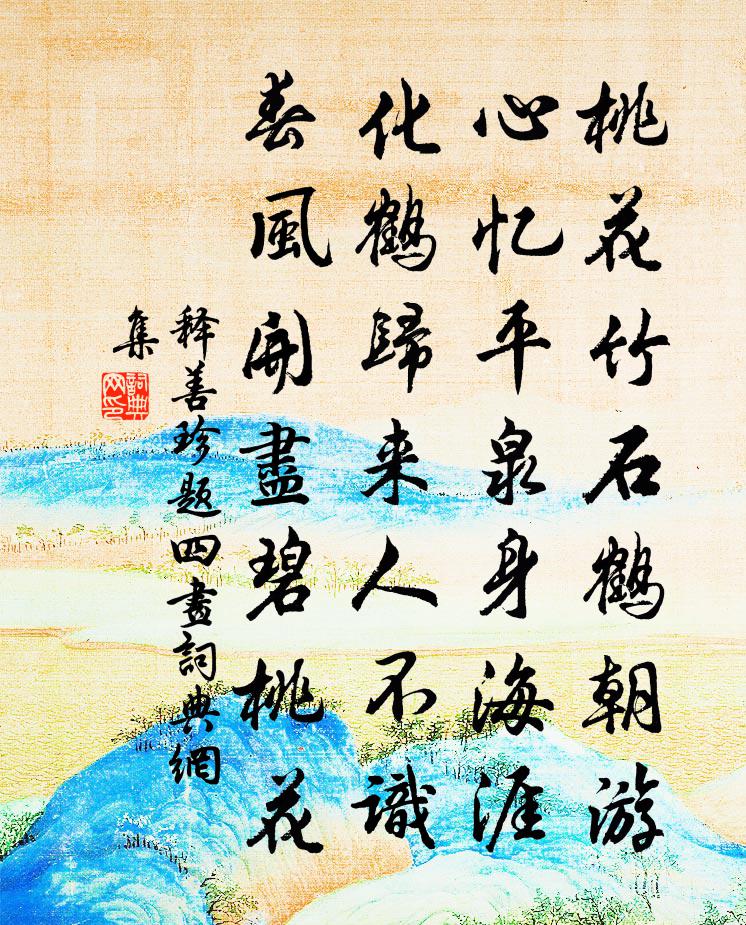 桃花竹石鹤朝游
心忆平泉身海涯
化鹤歸来人不識
春風開盡碧桃花
释善珍題四畫詞典網
集
詞典網印